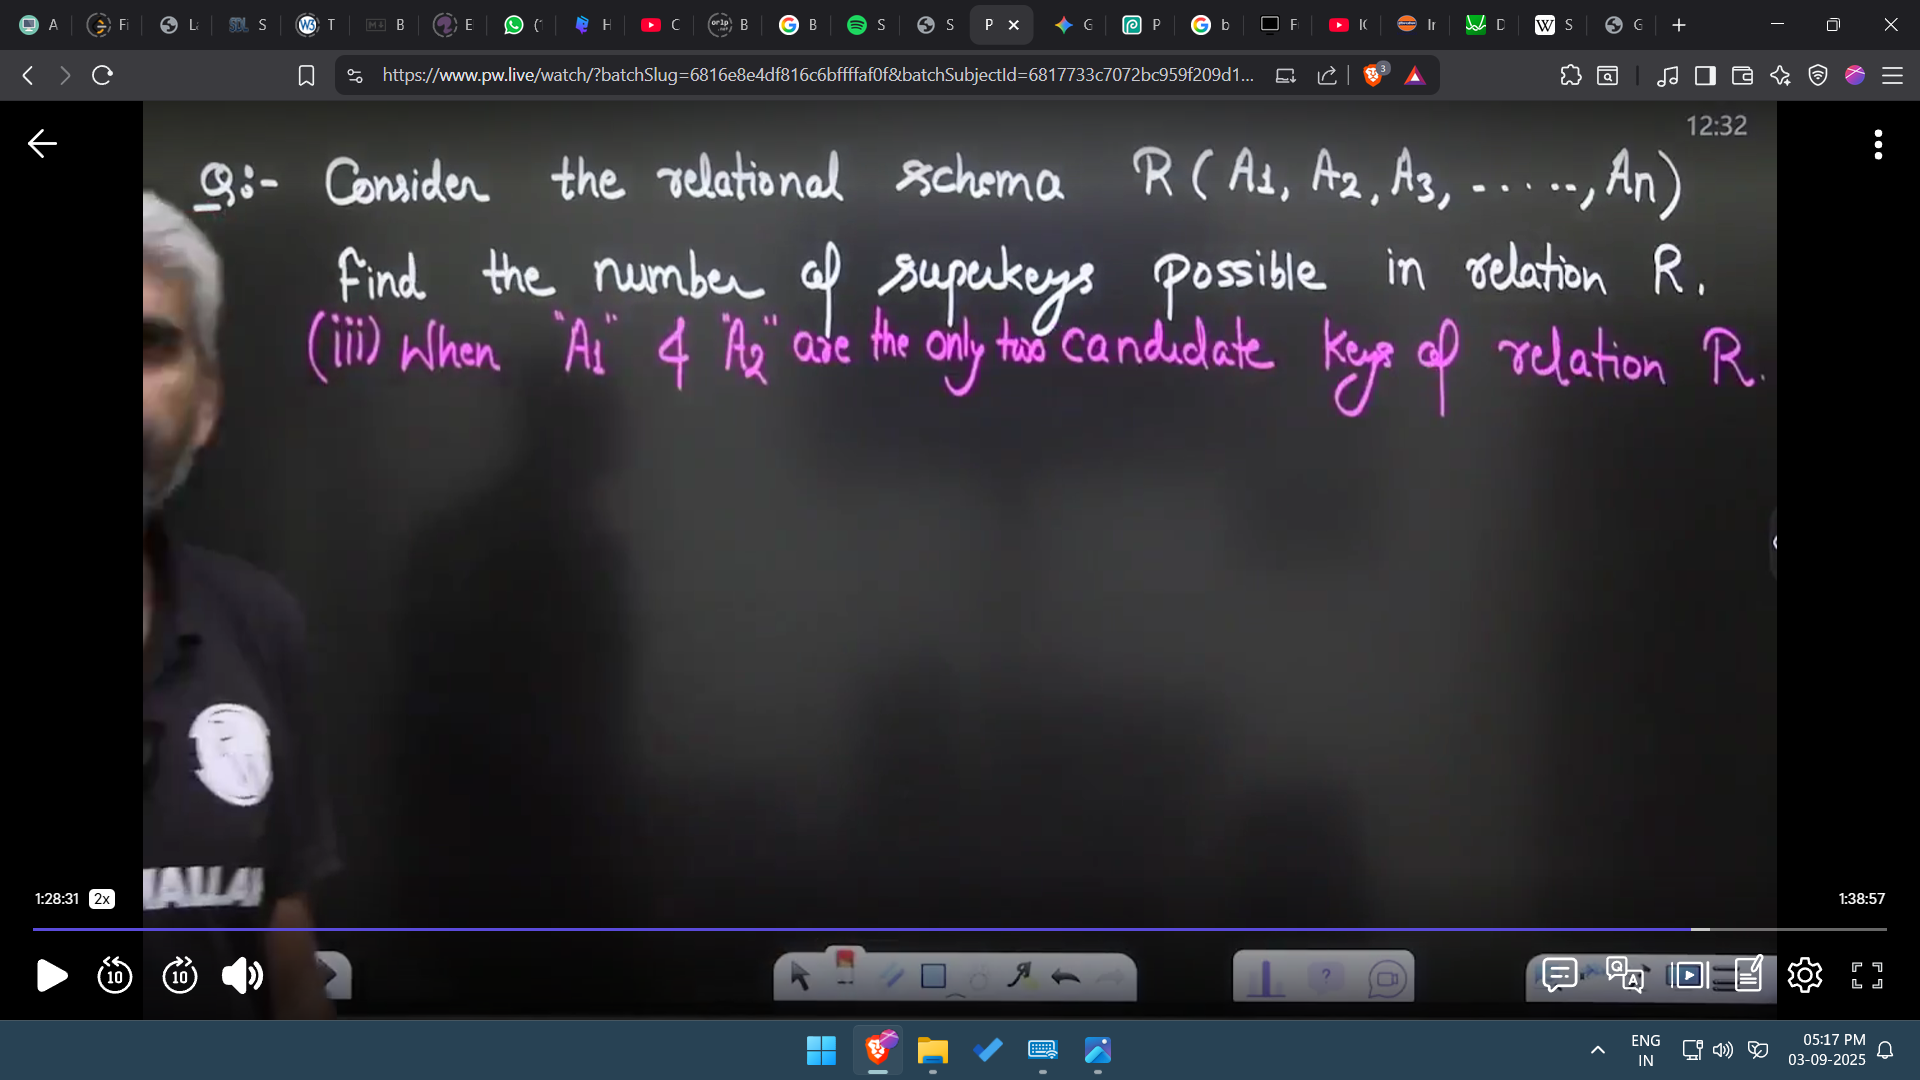 A
Fi
S
T
B
E
(
H
C
B
B
S
S
P
G
P
b
F
IC
Ir
D
S
G
https://www.pw.live/watch/?batchSlug=6816e8e4df816c6bffffaf0f&batchSubjectId=6817733c7072bc959f209d1...
3
12:32
Q:- Consider the relational schema R(A1, A2, A3, ......, An)
Find the number of superkeys possible in relation R.
(iii) When "A1" & "A2" are the only two candidate keys of relation R.
1:28:31 2x
1:38:57
10 10
ENG
IN
05:17 PM
03-09-2025